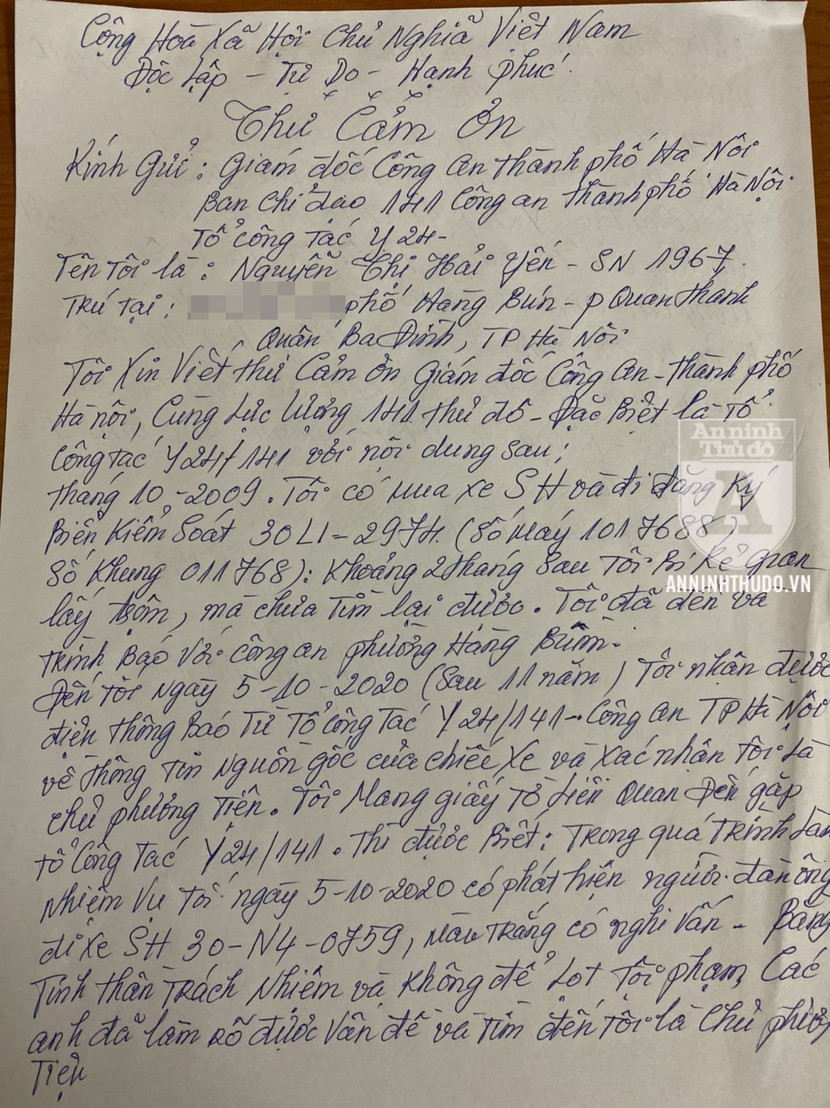 Cộng Hoà Xã Hội Chủ Nghĩa Việt Nam
Độc lập - Tự Do - Hạnh phúc.
Thư Cảm Ơn
Kính Gửi : Giám đốc Công an thành phố Hà Nội
Ban Chỉ đạo 141 Công an thành phố Hà Nội
Tổ công tác Y24-
Tên tôi là : Nguyễn Thị Hải Yến - SN 1967.
Trú tại : phố Hàng Bún - p Quan Thánh
Quận Ba Đình, TP Hà Nội
Tôi Xin Viết thư Cảm ơn Giám đốc Công An - thành phố
Hà nội, Cùng Lực lượng 141 thủ đô - Đặc Biệt là Tổ
Công tác Y24/141 với nội dung sau;
tháng 10 - 2009. Tôi có mua xe SH và đi đăng Ký
Biển Kiểm Soát 30L1 - 2974. (số máy 1017688)
Số Khung 011768): Khoảng 2 tháng sau Tôi Bị Kẻ gian
lấy trộm, mà chưa tìm lại được. Tôi đã đến và
trình Báo Với Công an phường Hàng Buồm.
Đến tối ngày 5-10-2020 (Sau 11 năm) Tôi nhận được
điện thông Báo Từ Tổ công Tác Y24/141 - Công An TP Hà Nội
về thông tin nguồn gốc của chiếc Xe và xác nhận Tôi là
chủ phương tiện. Tôi Mang giấy tờ liên quan Đến gặp
tổ Công Tác Y24/141. Thì được Biết: Trong quá trình làm
Nhiệm Vụ Tối ngày 5-10-2020 có phát hiện người đàn ông
đi xe SH 30-N4-0759, màu trắng có nghi vấn - Bằng
Tinh thần Trách Nhiệm và Không để Lọt Tội phạm, Các
anh đã làm rõ được Vấn đề và Tìm đến Tôi là Chủ phương
Tiện
An ninh
Thủ đô
A
ANNINHTHUDO.VN